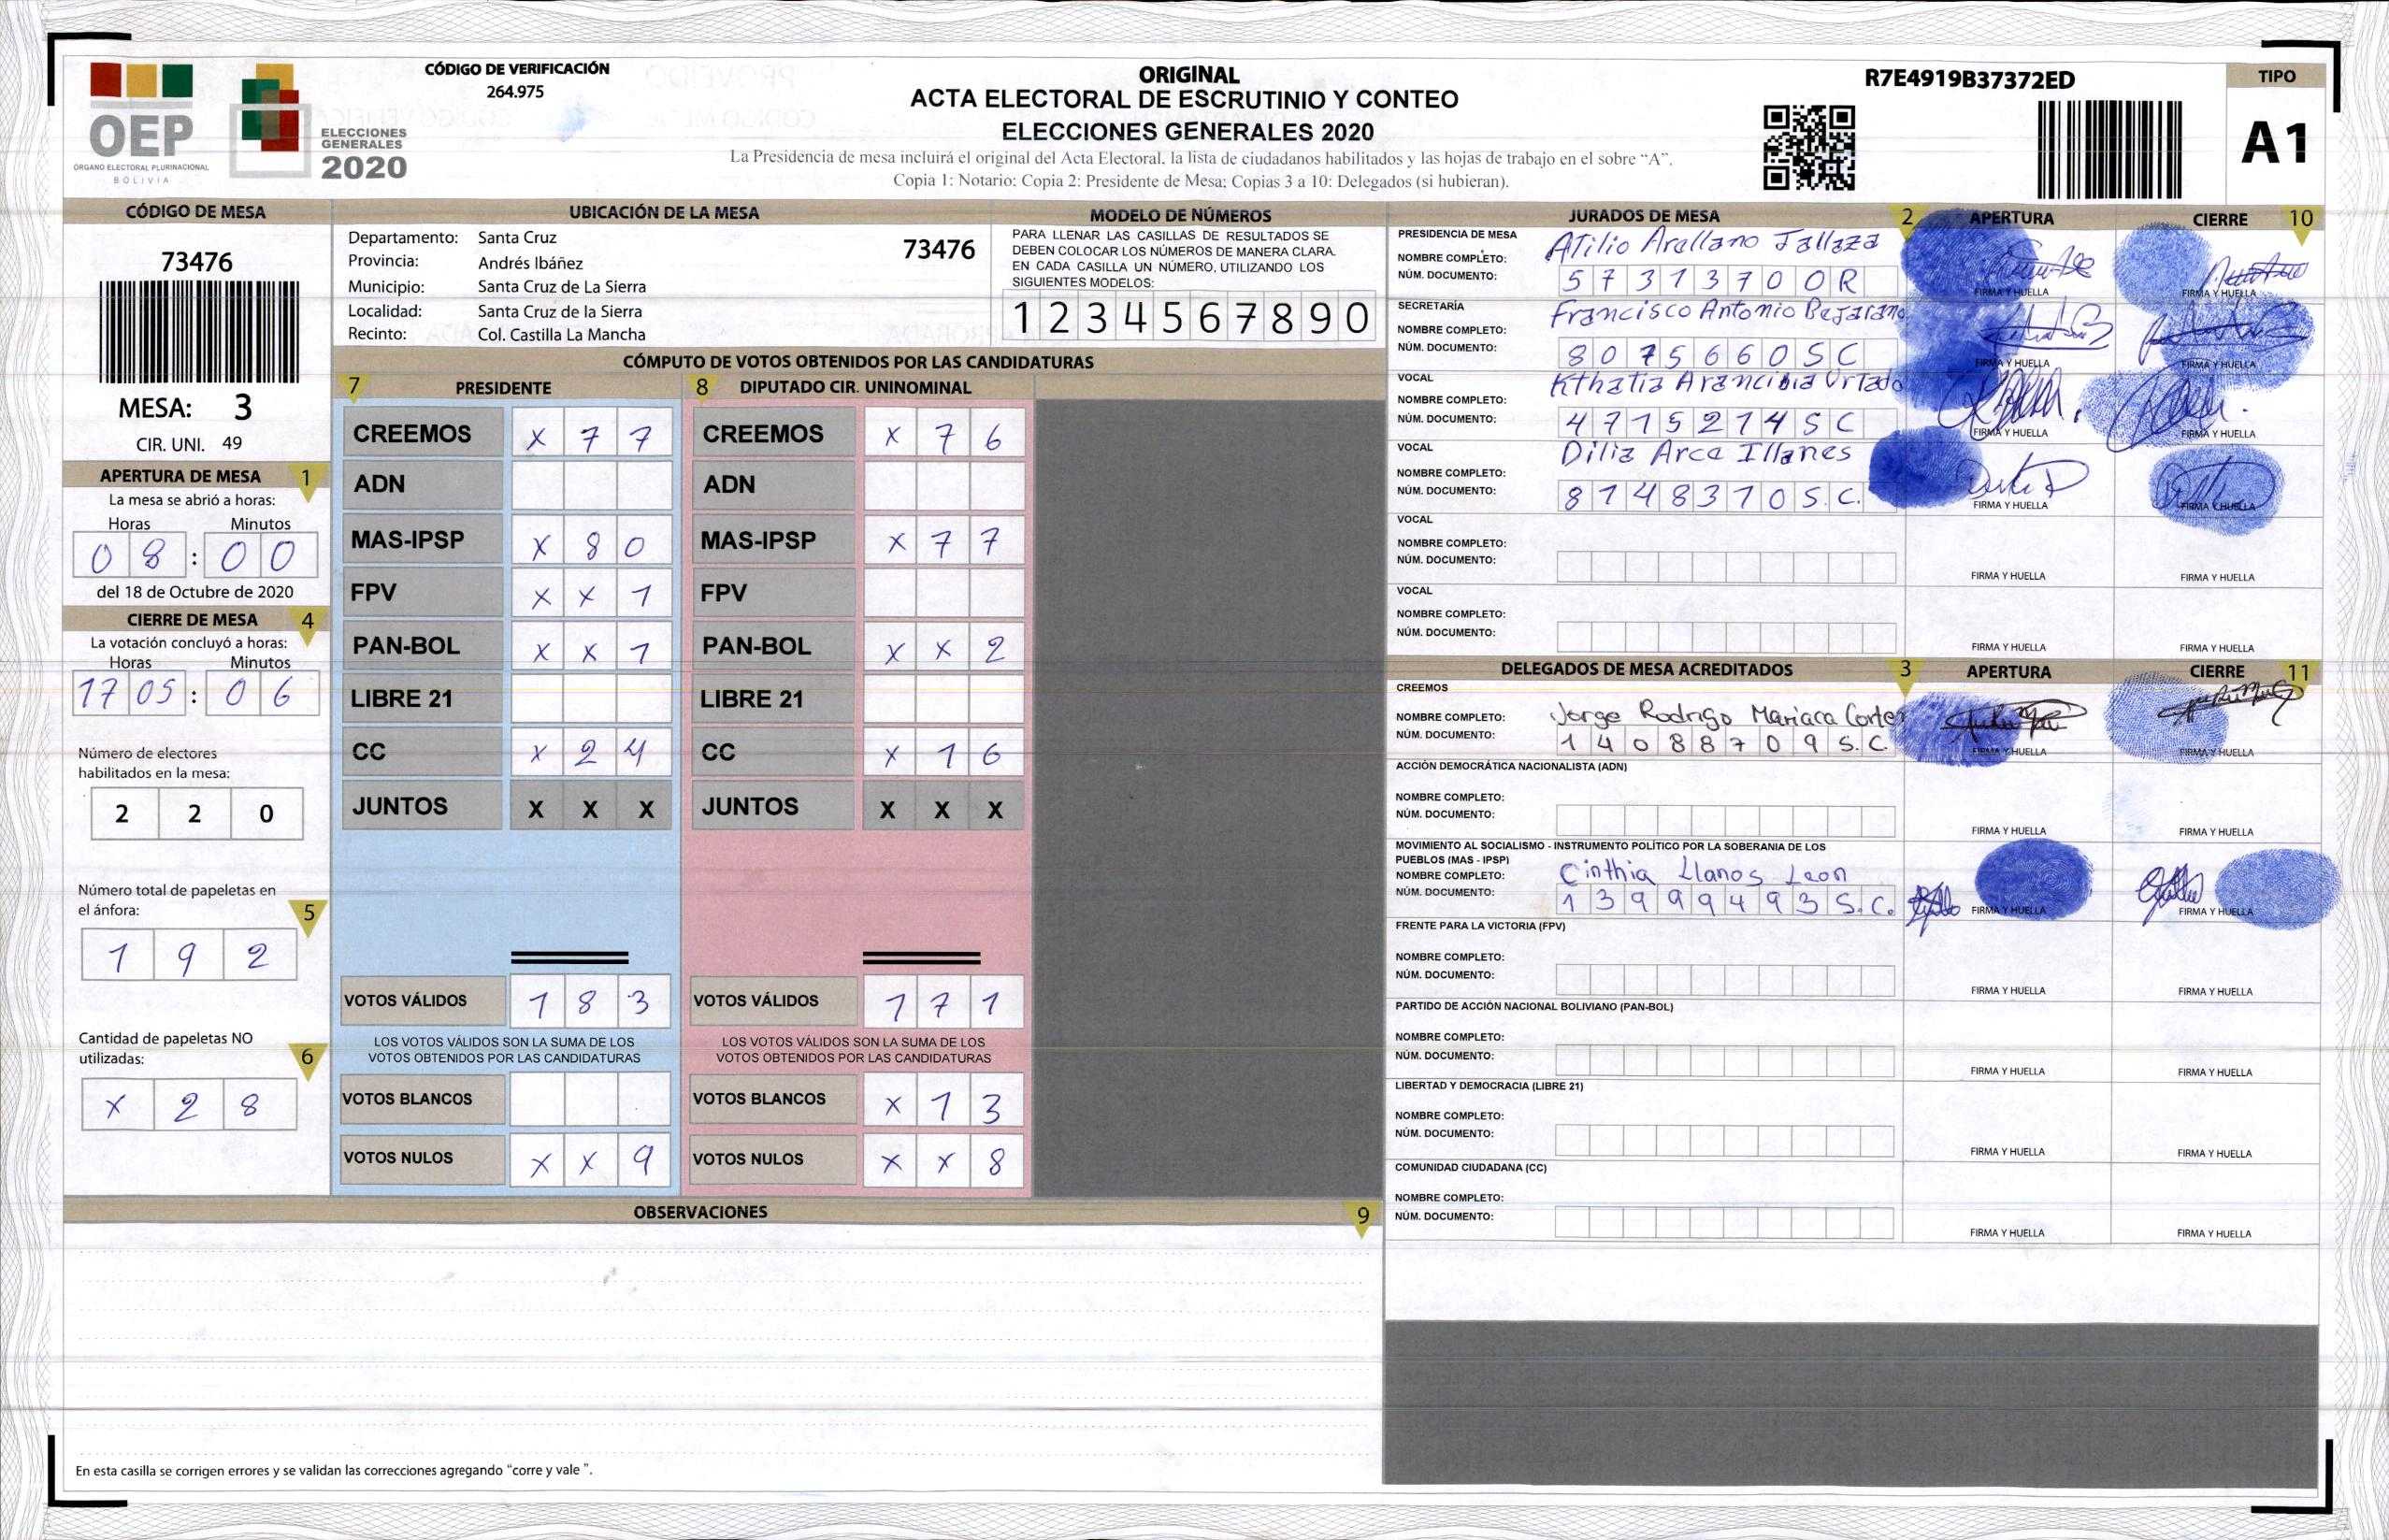 OEP
ORGANO ELECTORAL PLURINACIONAL
BOLIVIA
ELECCIONES
GENERALES
2020
CÓDIGO DE VERIFICACIÓN
264.975
ORIGINAL
ACTA ELECTORAL DE ESCRUTINIO Y CONTEO
ELECCIONES GENERALES 2020
La Presidencia de mesa incluirá el original del Acta Electoral, la lista de ciudadanos habilitados y las hojas de trabajo en el sobre “A”.
Copia 1: Notario; Copia 2: Presidente de Mesa; Copias 3 a 10: Delegados (si hubieran).
R7E4919B37372ED
TIPO
A1
CÓDIGO DE MESA
73476
MESA: 3
CIR. UNI. 49
APERTURA DE MESA 1
La mesa se abrió a horas:
Horas Minutos
0 8 : 0 0
del 18 de Octubre de 2020
CIERRE DE MESA 4
La votación concluyó a horas:
Horas Minutos
17 05 : 0 6
Número de electores
habilitados en la mesa:
2 2 0
Número total de papeletas en
el ánfora: 5
1 9 2
Cantidad de papeletas NO
utilizadas: 6
X 2 8
UBICACIÓN DE LA MESA
Departamento: Santa Cruz 73476
Provincia: Andrés Ibáñez
Municipio: Santa Cruz de La Sierra
Localidad: Santa Cruz de la Sierra
Recinto: Col. Castilla La Mancha
MODELO DE NÚMEROS
PARA LLENAR LAS CASILLAS DE RESULTADOS SE
DEBEN COLOCAR LOS NÚMEROS DE MANERA CLARA.
EN CADA CASILLA UN NÚMERO, UTILIZANDO LOS
SIGUIENTES MODELOS:
1 2 3 4 5 6 7 8 9 0
CÓMPUTO DE VOTOS OBTENIDOS POR LAS CANDIDATURAS
7 PRESIDENTE 8 DIPUTADO CIR. UNINOMINAL
CREEMOS X 7 7 CREEMOS X 7 6
ADN ADN
MAS-IPSP X 8 0 MAS-IPSP X 7 7
FPV X X 1 FPV
PAN-BOL X X 1 PAN-BOL X X 2
LIBRE 21 LIBRE 21
CC X 2 4 CC X 1 6
JUNTOS X X X JUNTOS X X X
VOTOS VÁLIDOS 1 8 3 VOTOS VÁLIDOS 1 7 1
LOS VOTOS VÁLIDOS SON LA SUMA DE LOS LOS VOTOS VÁLIDOS SON LA SUMA DE LOS
VOTOS OBTENIDOS POR LAS CANDIDATURAS VOTOS OBTENIDOS POR LAS CANDIDATURAS
VOTOS BLANCOS VOTOS BLANCOS X 1 3
VOTOS NULOS X X 9 VOTOS NULOS X X 8
OBSERVACIONES 9
En esta casilla se corrigen errores y se validan las correcciones agregando “corre y vale ”.
JURADOS DE MESA 2 APERTURA CIERRE 10
PRESIDENCIA DE MESA
NOMBRE COMPLETO: Atilio Arellano Jallaza
NÚM. DOCUMENTO: 5 7 3 1 3 7 0 0 R FIRMA Y HUELLA FIRMA Y HUELLA
SECRETARÍA
NOMBRE COMPLETO: Francisco Antonio Bejarano
NÚM. DOCUMENTO: 8 0 7 5 6 6 0 S C FIRMA Y HUELLA FIRMA Y HUELLA
VOCAL
NOMBRE COMPLETO: Kthatia Arancibia Urtado
NÚM. DOCUMENTO: 4 7 1 5 2 1 4 S C FIRMA Y HUELLA FIRMA Y HUELLA
VOCAL
NOMBRE COMPLETO: Dilia Arce Illanes
NÚM. DOCUMENTO: 8 1 4 8 3 1 0 S. C. FIRMA Y HUELLA FIRMA Y HUELLA
VOCAL
NOMBRE COMPLETO:
NÚM. DOCUMENTO: FIRMA Y HUELLA FIRMA Y HUELLA
VOCAL
NOMBRE COMPLETO:
NÚM. DOCUMENTO: FIRMA Y HUELLA FIRMA Y HUELLA
DELEGADOS DE MESA ACREDITADOS 3 APERTURA CIERRE 11
CREEMOS
NOMBRE COMPLETO: Jorge Rodrigo Mariaca Cortez
NÚM. DOCUMENTO: 1 4 0 8 8 7 0 9 S. C. FIRMA Y HUELLA FIRMA Y HUELLA
ACCIÓN DEMOCRÁTICA NACIONALISTA (ADN)
NOMBRE COMPLETO:
NÚM. DOCUMENTO: FIRMA Y HUELLA FIRMA Y HUELLA
MOVIMIENTO AL SOCIALISMO - INSTRUMENTO POLÍTICO POR LA SOBERANIA DE LOS
PUEBLOS (MAS - IPSP)
NOMBRE COMPLETO: Cinthia Llanos Leon
NÚM. DOCUMENTO: 1 3 9 9 9 4 9 3 S. C. FIRMA Y HUELLA FIRMA Y HUELLA
FRENTE PARA LA VICTORIA (FPV)
NOMBRE COMPLETO:
NÚM. DOCUMENTO: FIRMA Y HUELLA FIRMA Y HUELLA
PARTIDO DE ACCIÓN NACIONAL BOLIVIANO (PAN-BOL)
NOMBRE COMPLETO:
NÚM. DOCUMENTO: FIRMA Y HUELLA FIRMA Y HUELLA
LIBERTAD Y DEMOCRACIA (LIBRE 21)
NOMBRE COMPLETO:
NÚM. DOCUMENTO: FIRMA Y HUELLA FIRMA Y HUELLA
COMUNIDAD CIUDADANA (CC)
NOMBRE COMPLETO:
NÚM. DOCUMENTO: FIRMA Y HUELLA FIRMA Y HUELLA